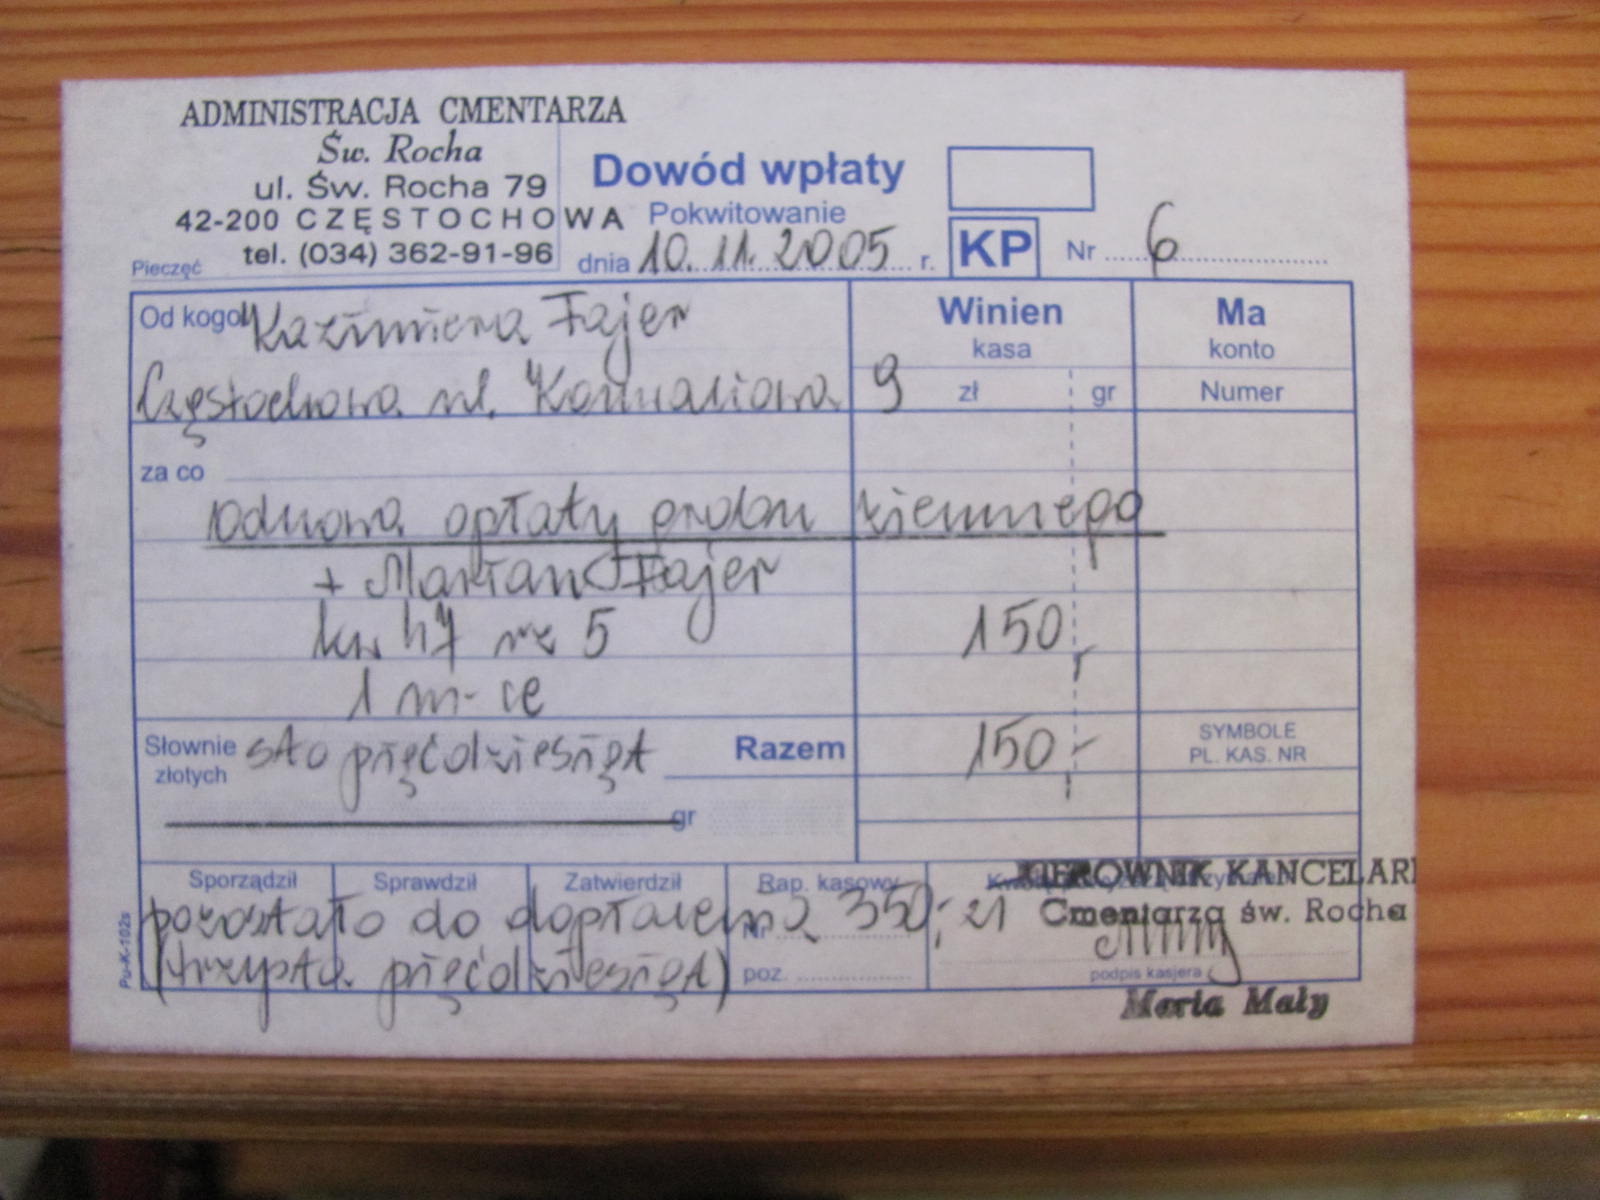 ADMINISTRACJA CMENTARZA
Św. Rocha
ul. Św. Rocha 79
42-200 CZĘSTOCHOWA
tel. (034) 362-91-96
Pieczęć
Dowód wpłaty
Pokwitowanie
dnia 10.11.2005 r.
KP Nr 6
Od kogo Kazimiera Fajer
Częstochowa ul. Konwaliowa 9
Winien
kasa
zł gr
Ma
konto
Numer
za co
odnowa opłaty grobu ziemnego
+ Marian Fajer
kw 47 nr 5 150,-
1 m-ce
Słownie złotych sto pięćdziesiąt Razem 150,-
SYMBOLE
PL. KAS. NR
gr
Sporządził Sprawdził Zatwierdził Rap. kasowy
KIEROWNIK KANCELARI
Cmentarza św. Rocha
pozostało do dopłacenia 350,- zł
Nr
(trzysta pięćdziesiąt)
poz.
podpis kasjera
Maria Mały
Pu-K-102s